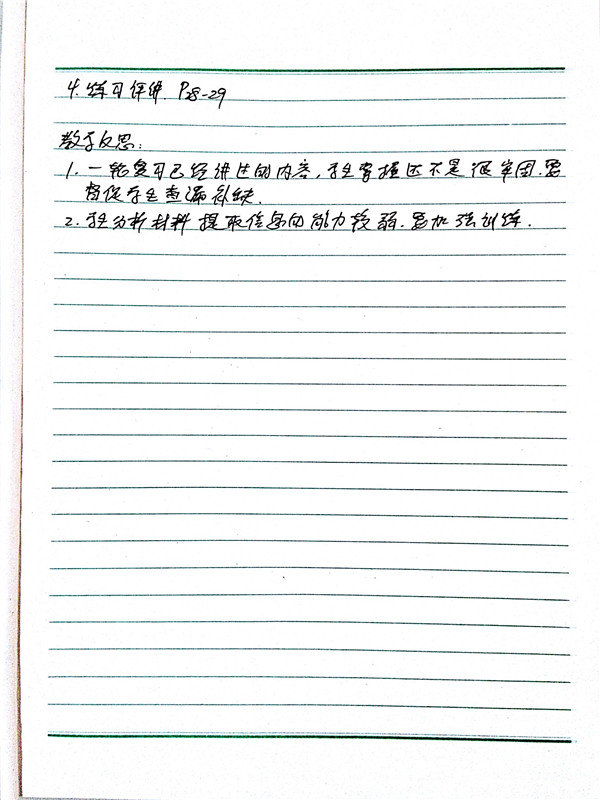 4. 练习评讲. P28-29
教学反思:
1. 一轮复习已经讲过的内容, 学生掌握还不是很牢固. 要
督促学生查漏补缺.
2. 学生分析材料 提取信息的能力较弱. 要加强训练.